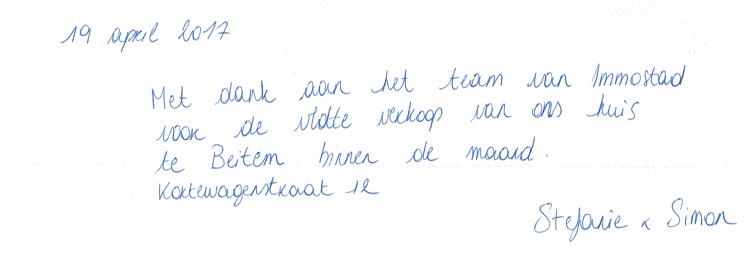 19 april 2017
Met dank aan het team van Immostad
voor de vlotte verkoop van ons huis
te Beitem binnen de maand.
Kortewagenstraat 12
Stefanie & Simon